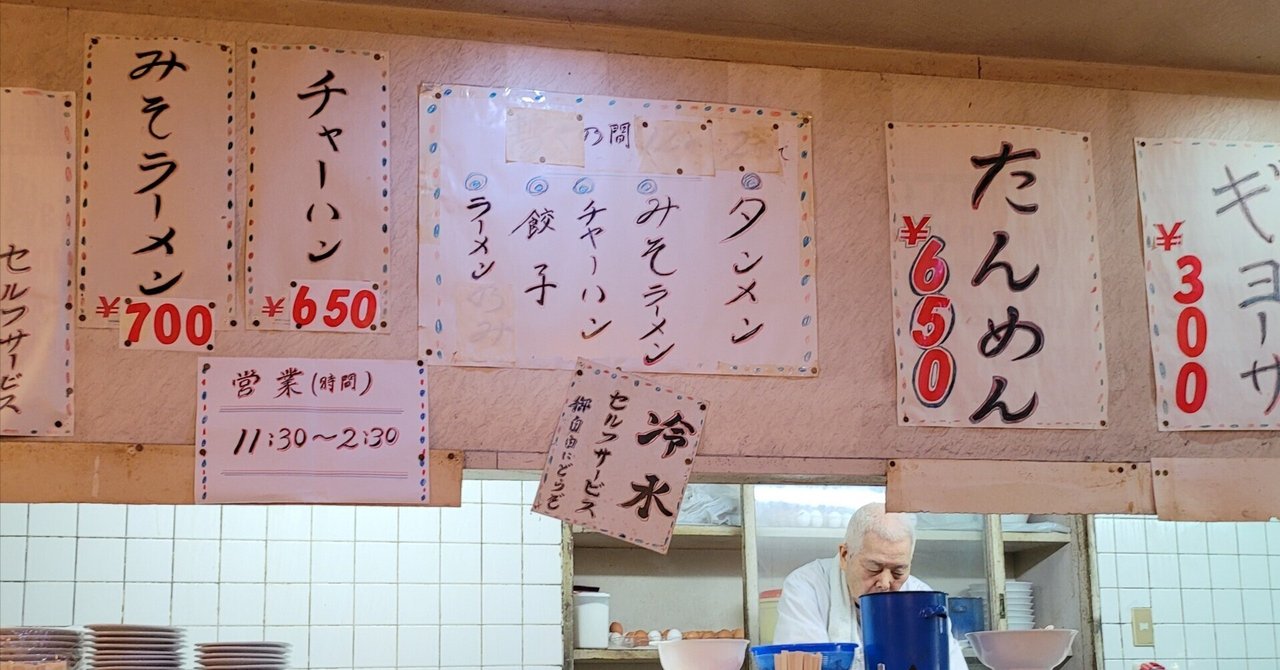 セルフサービス
みそラーメン
¥700
チャーハン
¥650
営業(時間)
11:30~2:30
乃間
て
タンメン
みそラーメン
チャーハン
餃子
ラーメン
のみ
冷水
セルフサービス
御自由にどうぞ
たんめん
¥650
ギョーザ
¥300